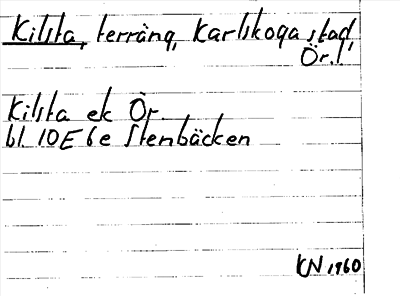 Kilsta, terräng, Karlskoga stad,
Ör.
Kilsta ek Ör.
bl. 10E 6e Stenbäcken
KN 1960